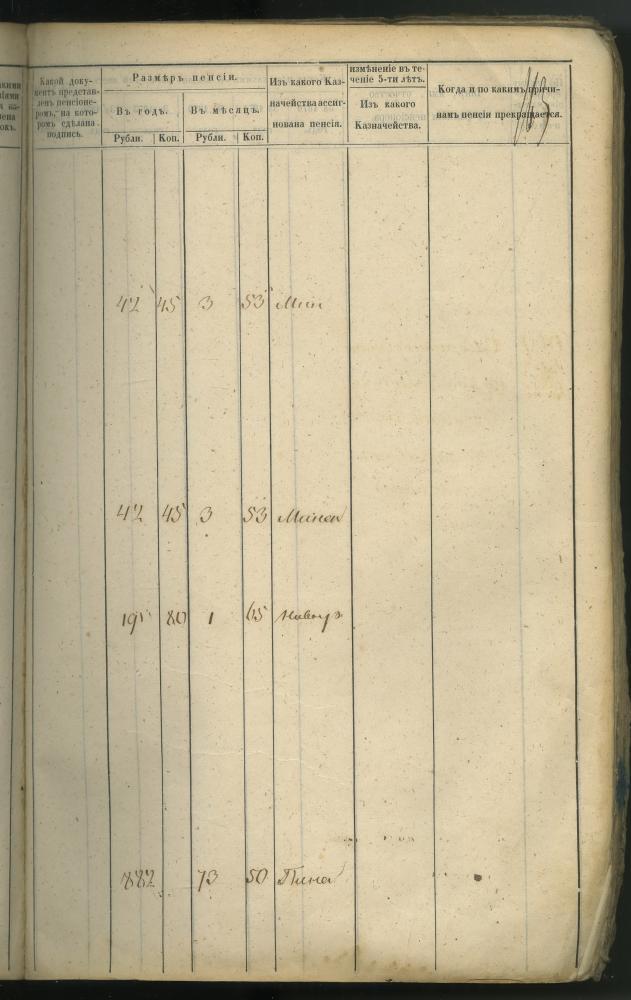 Какой доку-
ментъ представ-
ленъ пенсіоне-
ромъ, на кото-
ромъ сдѣлана
подпись.
Размѣръ пенсіи.
Въ годъ.
Въ мѣсяцъ.
Рубли.
Коп.
Рубли.
Коп.
Изъ какого Каз-
начейства ассиг-
нована пенсія.
измѣненіе въ те-
ченіе 5-ти лѣтъ.
Изъ какого
Казначейства.
Когда и по какимъ причи-
намъ пенсія прекращается.
42 45 3 53 Мин
42 45 3 53 Минск
19 80 1 65
882 73 50